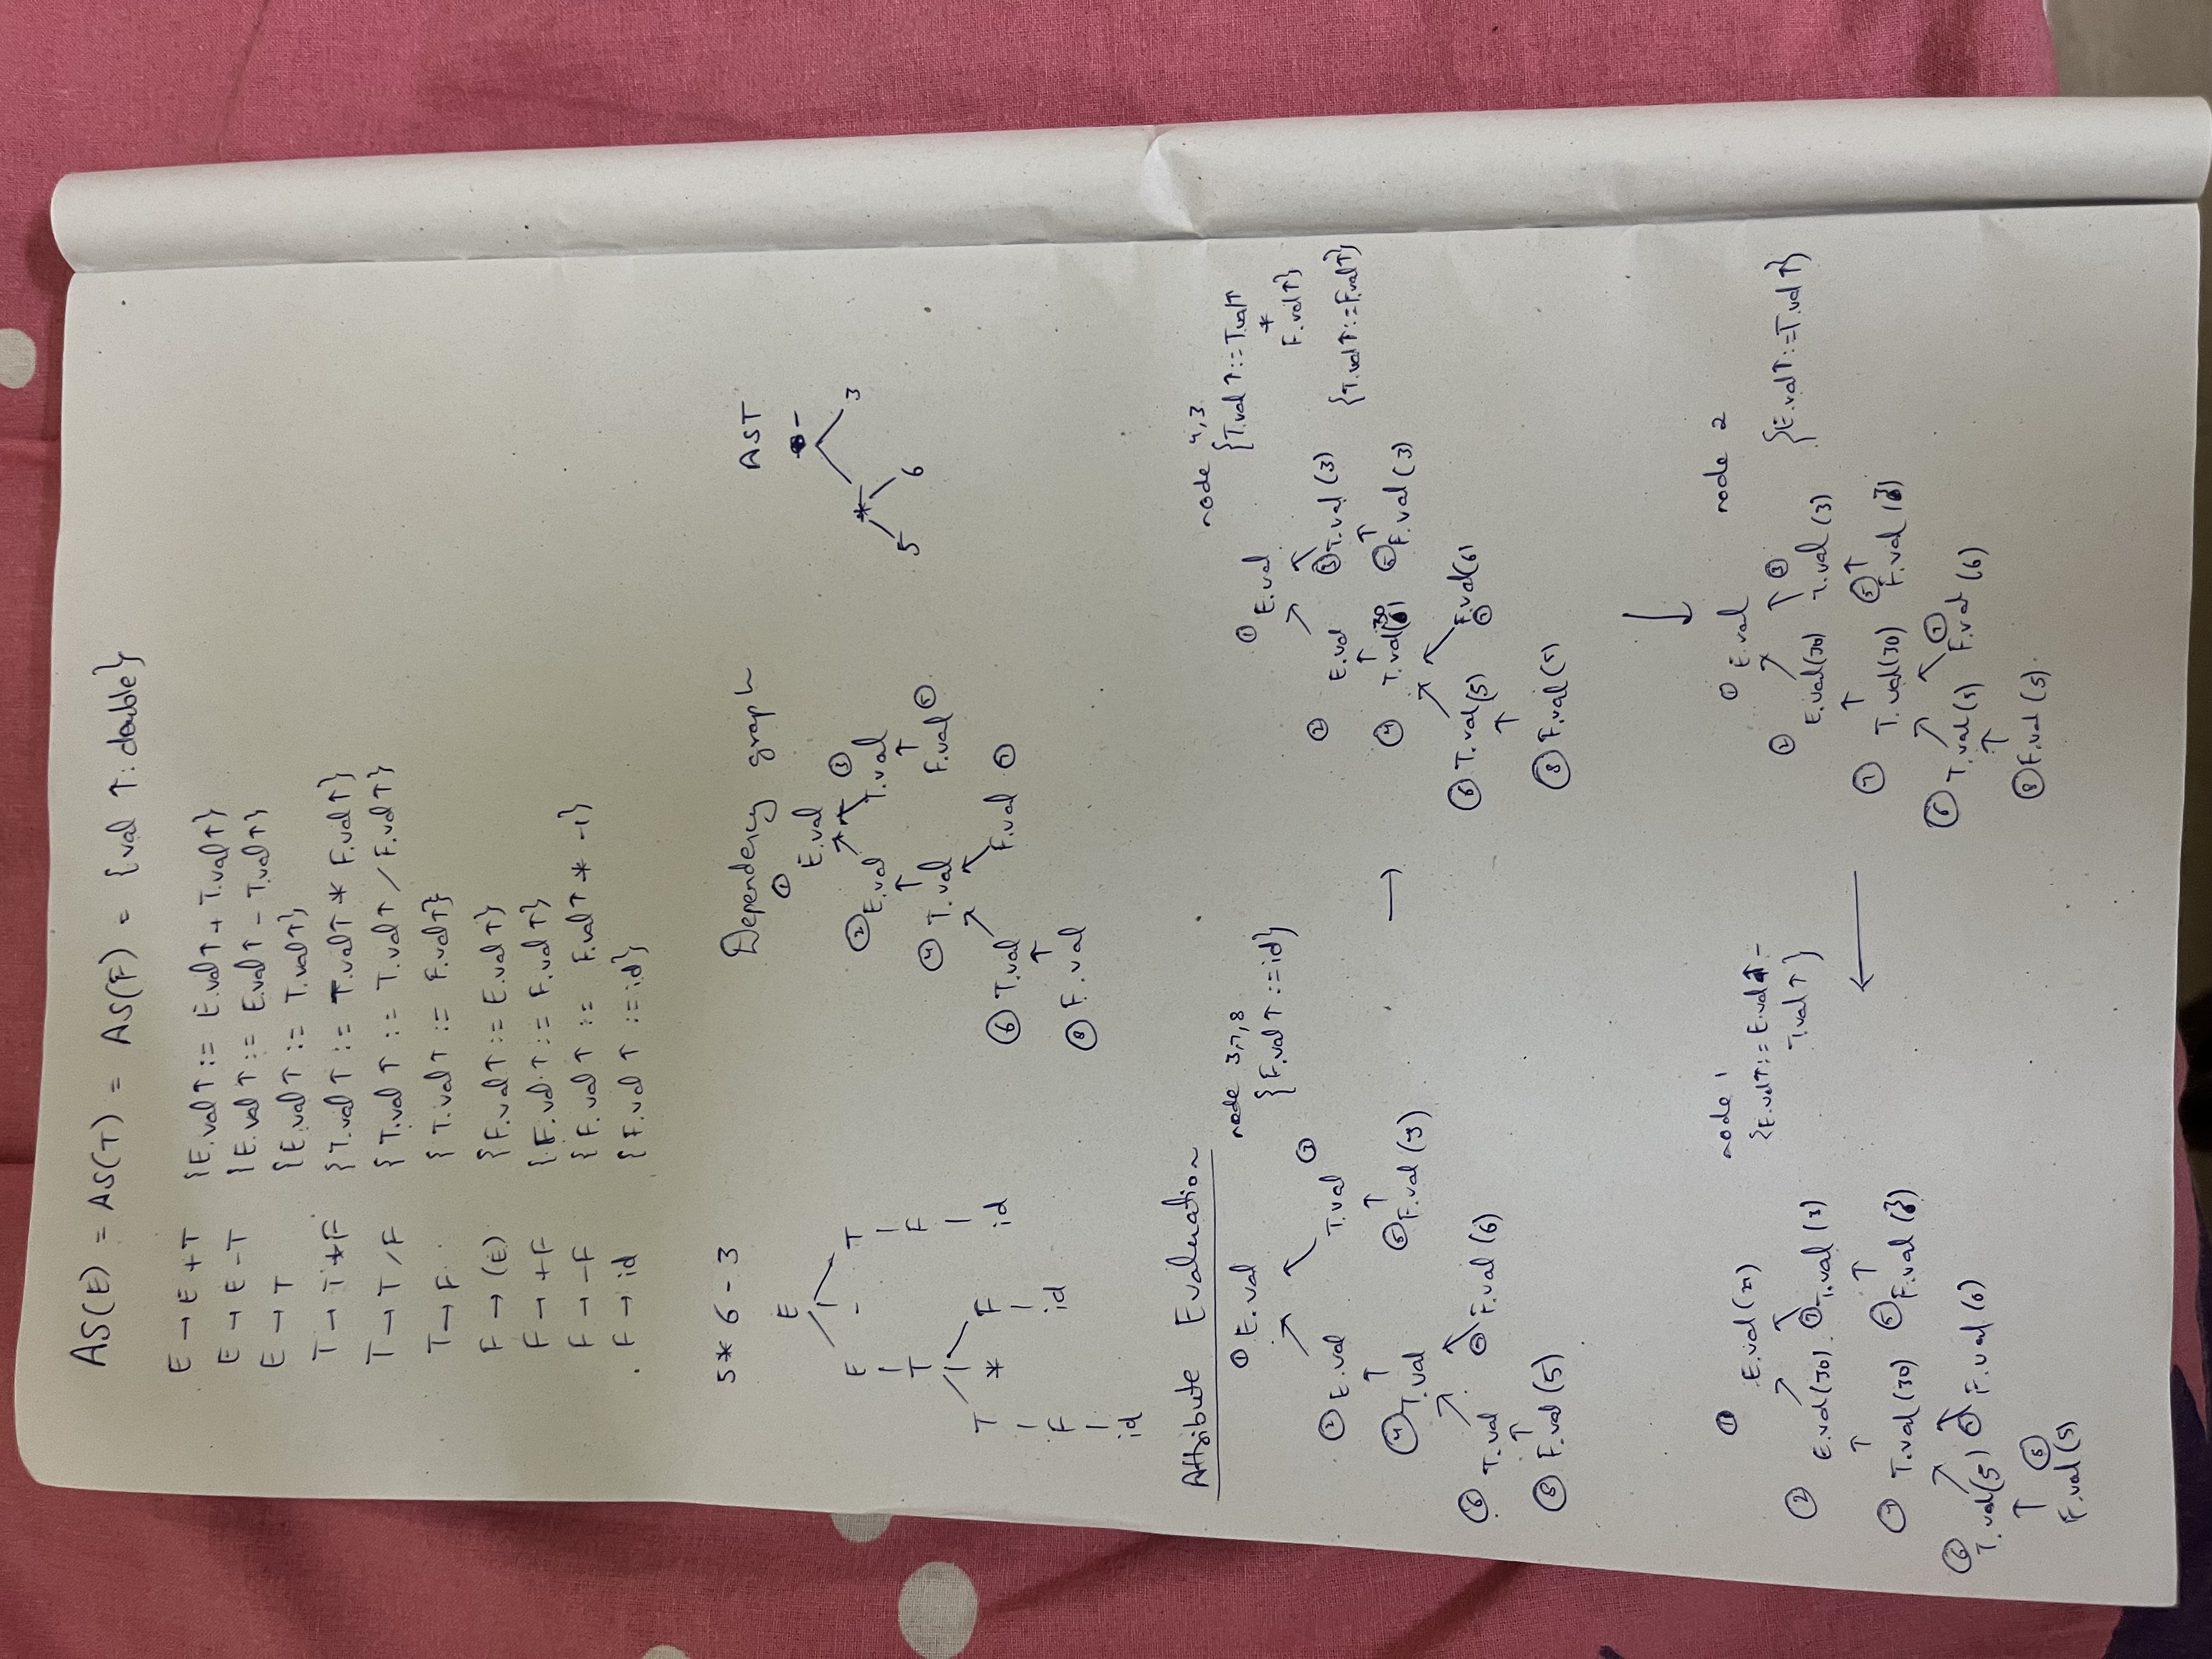 AS(E) = AS(T) = AS(F) = {val ↑: double}
E → E + T {E.val↑ := E.val↑ + T.val↑}
E → E - T {E.val ↑ := E.val↑ - T.val↑}
E → T {E.val ↑ := T.val↑}
T → T * F {T.val ↑ := T.val↑ * F.val↑}
T → T / F {T.val ↑ := T.val↑ / F.val↑}
T → F {T.val ↑ := F.val↑}
F → (E) {F.val↑ := E.val↑}
F → +F {F.val ↑ := F.val↑}
F → -F {F.val ↑ := F.val↑ * -1}
F → id {F.val ↑ := id}
5 * 6 - 3
E
E - T
T F
T * F id
F id
id
Dependency graph
① E.val
② E.val ③ T.val
④ T.val F.val ⑤
⑥ T.val F.val ⑦
⑧ F.val
AST
-
* 3
5 6
Attribute Evaluation
① E.val
② E.val T.val ③
④ T.val ⑤ F.val (3)
⑥ T.val ⑦ F.val (6)
⑧ F.val (5)
node 3,7,8
{F.val ↑ := id}
→
① E.val
② E.val ③ T.val (3)
④ T.val(30) ⑤ F.val (3)
⑥ T.val (5) F.val(6) ⑦
⑧ F.val (5)
node 4,3
{T.val ↑ := T.val↑
*
F.val↑}
{T.val↑ := F.val↑}
↓
① E.val
② E.val(30) ③ T.val (3)
T.val(30) ⑤ F.val (3)
⑥ T.val(5) F.val (6) ⑦
⑧ F.val (5)
node 2
{E.val↑ := T.val↑}
←
① E.val
② E.val(30) T.val (3)
T.val (30) ⑤ F.val (3)
⑥ T.val(5) F.val (6)
⑧
F.val (5)
node 1
{E.val↑ := E.val↑ -
T.val↑}